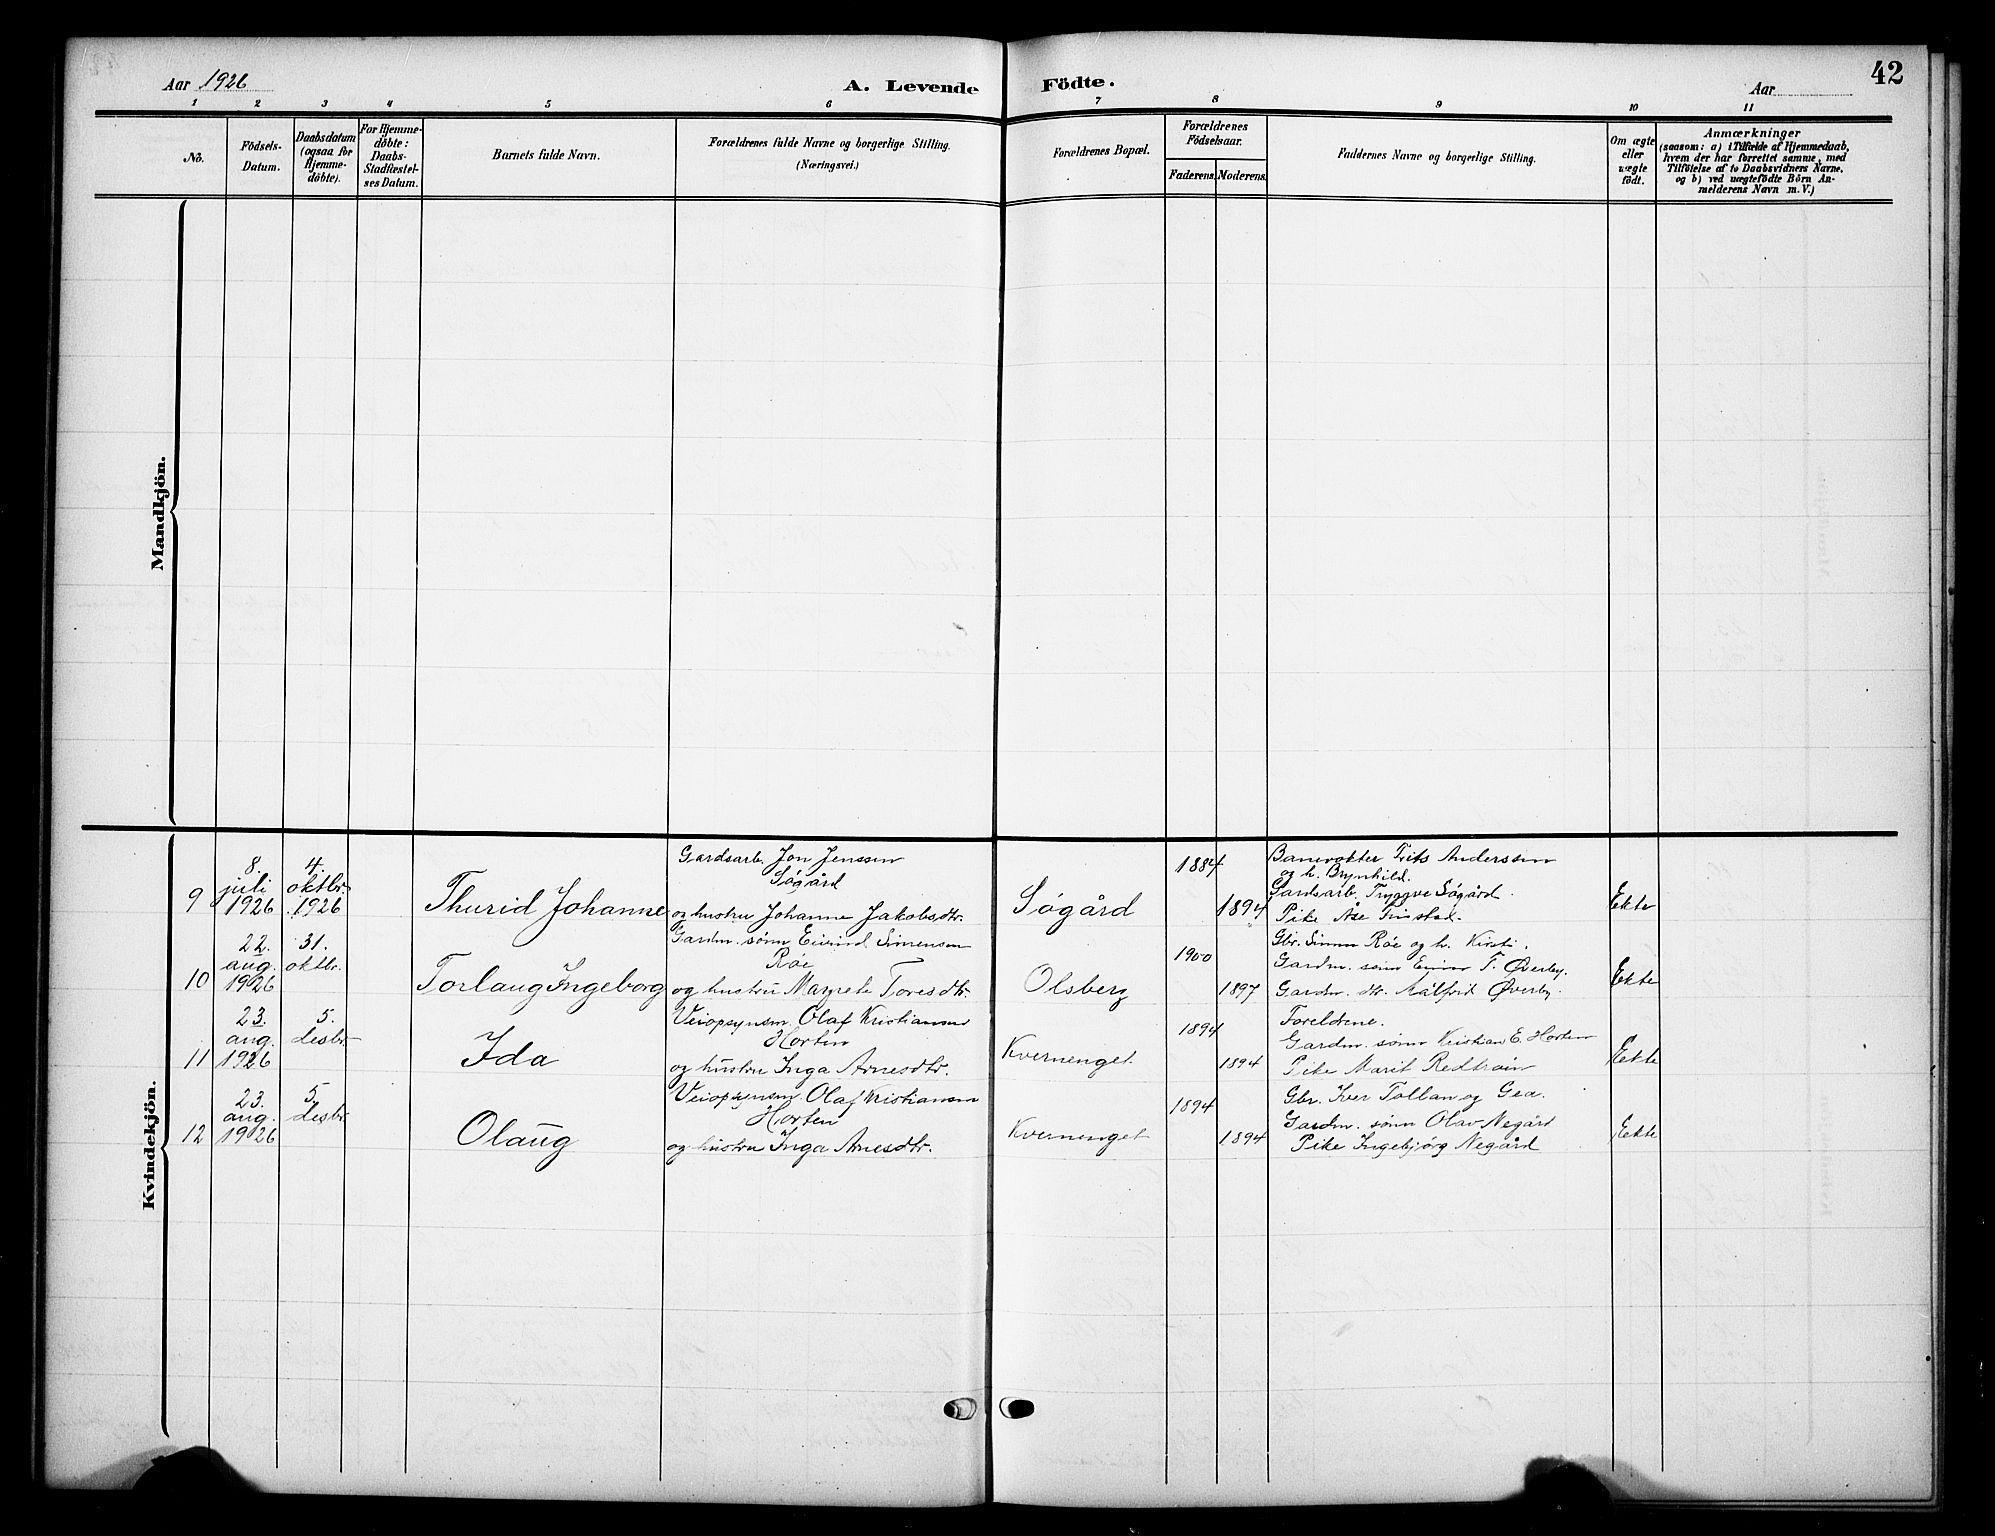 Aar 1926
A. Levende Födte.
Aar
42
1 2 3 4 5 6 7 8 9 10 11
No.
Födsels-Datum.
Daabsdatum (ogsaa for Hjemme-döbte).
For Hjemme-döbte: Daabs-Stadfæstel-ses Datum.
Barnets fulde Navn.
Forældrenes fulde Navne og borgerlige Stilling.
(Næringsvei.)
Forældrenes Bopæl.
Forældrenes Födselsaar.
Faderens. Moderens.
Faddernes Navne og borgerlige Stilling.
Om ægte eller uægte födt.
Anmærkninger
(saasom: a) i Tilfælde af Hjemmedaab,
hvem der har forrettet samme, med
Tilföielse af to Daabsvidners Navne.
og b) ved uægtefödte Börn An-
melderens Navn m. V.)
Mandkjön.
Kvindekjön.
9
8. juli 1926
4. oktbr. 1926
Thurid Johanne
Gardsarb. Jon Jenssen
Søgård
og hustru Johanne Jakobsdtr.
Søgård
1884
1894
Banevokter Anderssen
og h. Brynhild.
Gardsarb. Tryggve Søgård.
Pike Åse
Ekte
10
22. aug. 1926
31. oktbr.
Torlaug Ingeborg
Gardm. sønn Eivind Simensen
Røe
og hustru Margrete Toresdtr.
Olsberg
1900
1897
Gbr. Simen Røe og h. Kirsti.
Gardm. sønn Einar T. Øverby.
Gardm. dtr. Målfrid Øverby.
Ekte
11
23. aug. 1926
5. desbr.
Ida
Veiopsynsm. Olaf Kristiansen
Horten
og hustru Inga Arnesdtr.
Kvernenget
1894
1894
Foreldrene.
Gardm. sønn Kristian E. Horten
Pike Marit
Ekte
12
23. aug. 1926
5. desbr.
Olaug
Veiopsynsm. Olaf Kristiansen
Horten
og hustru Inga Arnesdtr.
Kvernenget
1894
1894
Gbr. Iver Tollan og Gea.
Gardm. sønn Olav Negård
Pike Ingebjørg Negård
Ekte